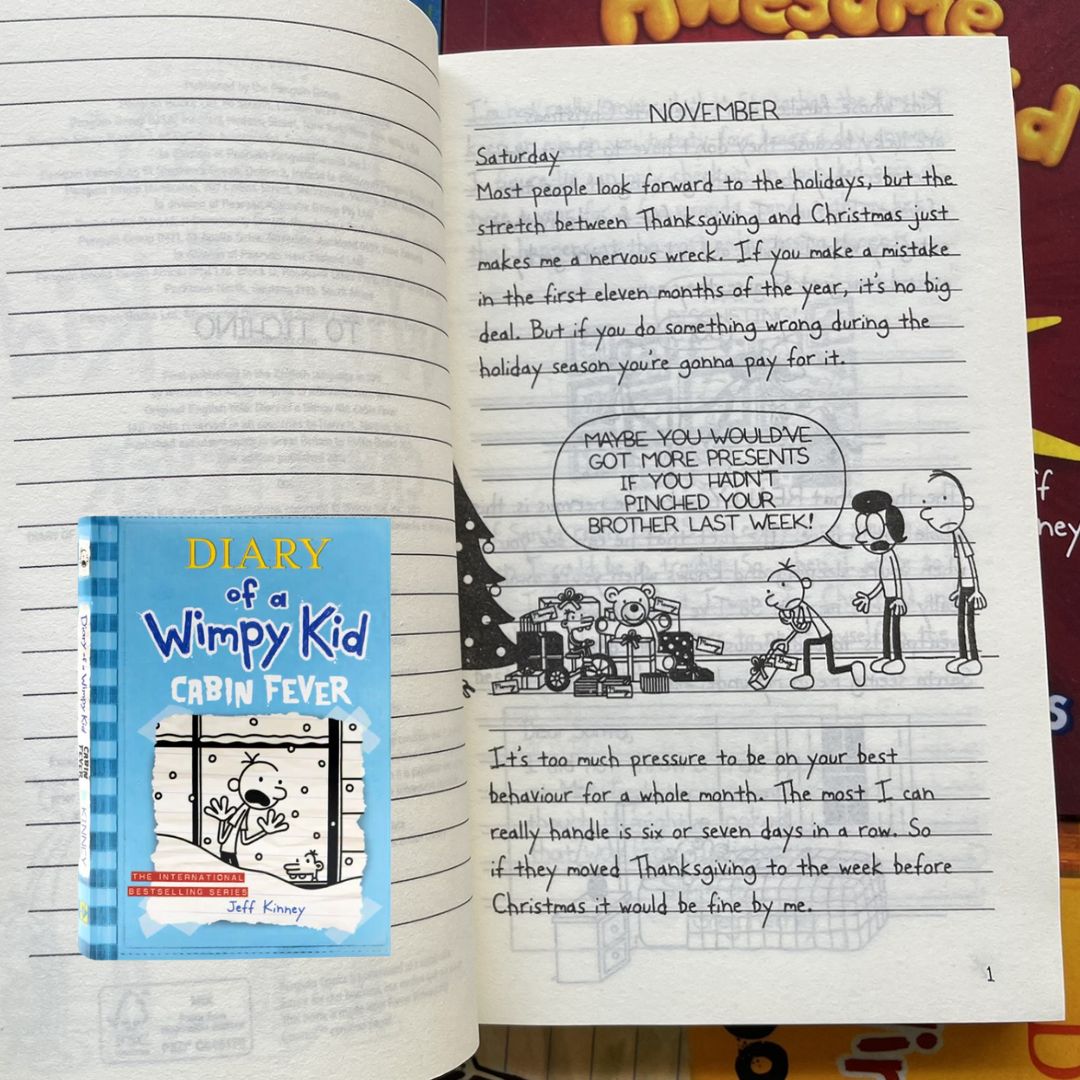 Awesome
NOVEMBER
Saturday
Most people look forward to the holidays, but the
stretch between Thanksgiving and Christmas just
makes me a nervous wreck. If you make a mistake
in the first eleven months of the year, it's no big
deal. But if you do something wrong during the
holiday season you're gonna pay for it.
MAYBE YOU WOULD'VE
GOT MORE PRESENTS
IF YOU HADN'T
PINCHED YOUR
BROTHER LAST WEEK!
It's too much pressure to be on your best
behaviour for a whole month. The most I can
really handle is six or seven days in a row. So
if they moved Thanksgiving to the week before
Christmas it would be fine by me.
1
DIARY
of a
Wimpy Kid
CABIN FEVER
THE INTERNATIONAL
BESTSELLING SERIES
Jeff Kinney
Diary of a Wimpy Kid
CABIN
FEVER
KINNEY